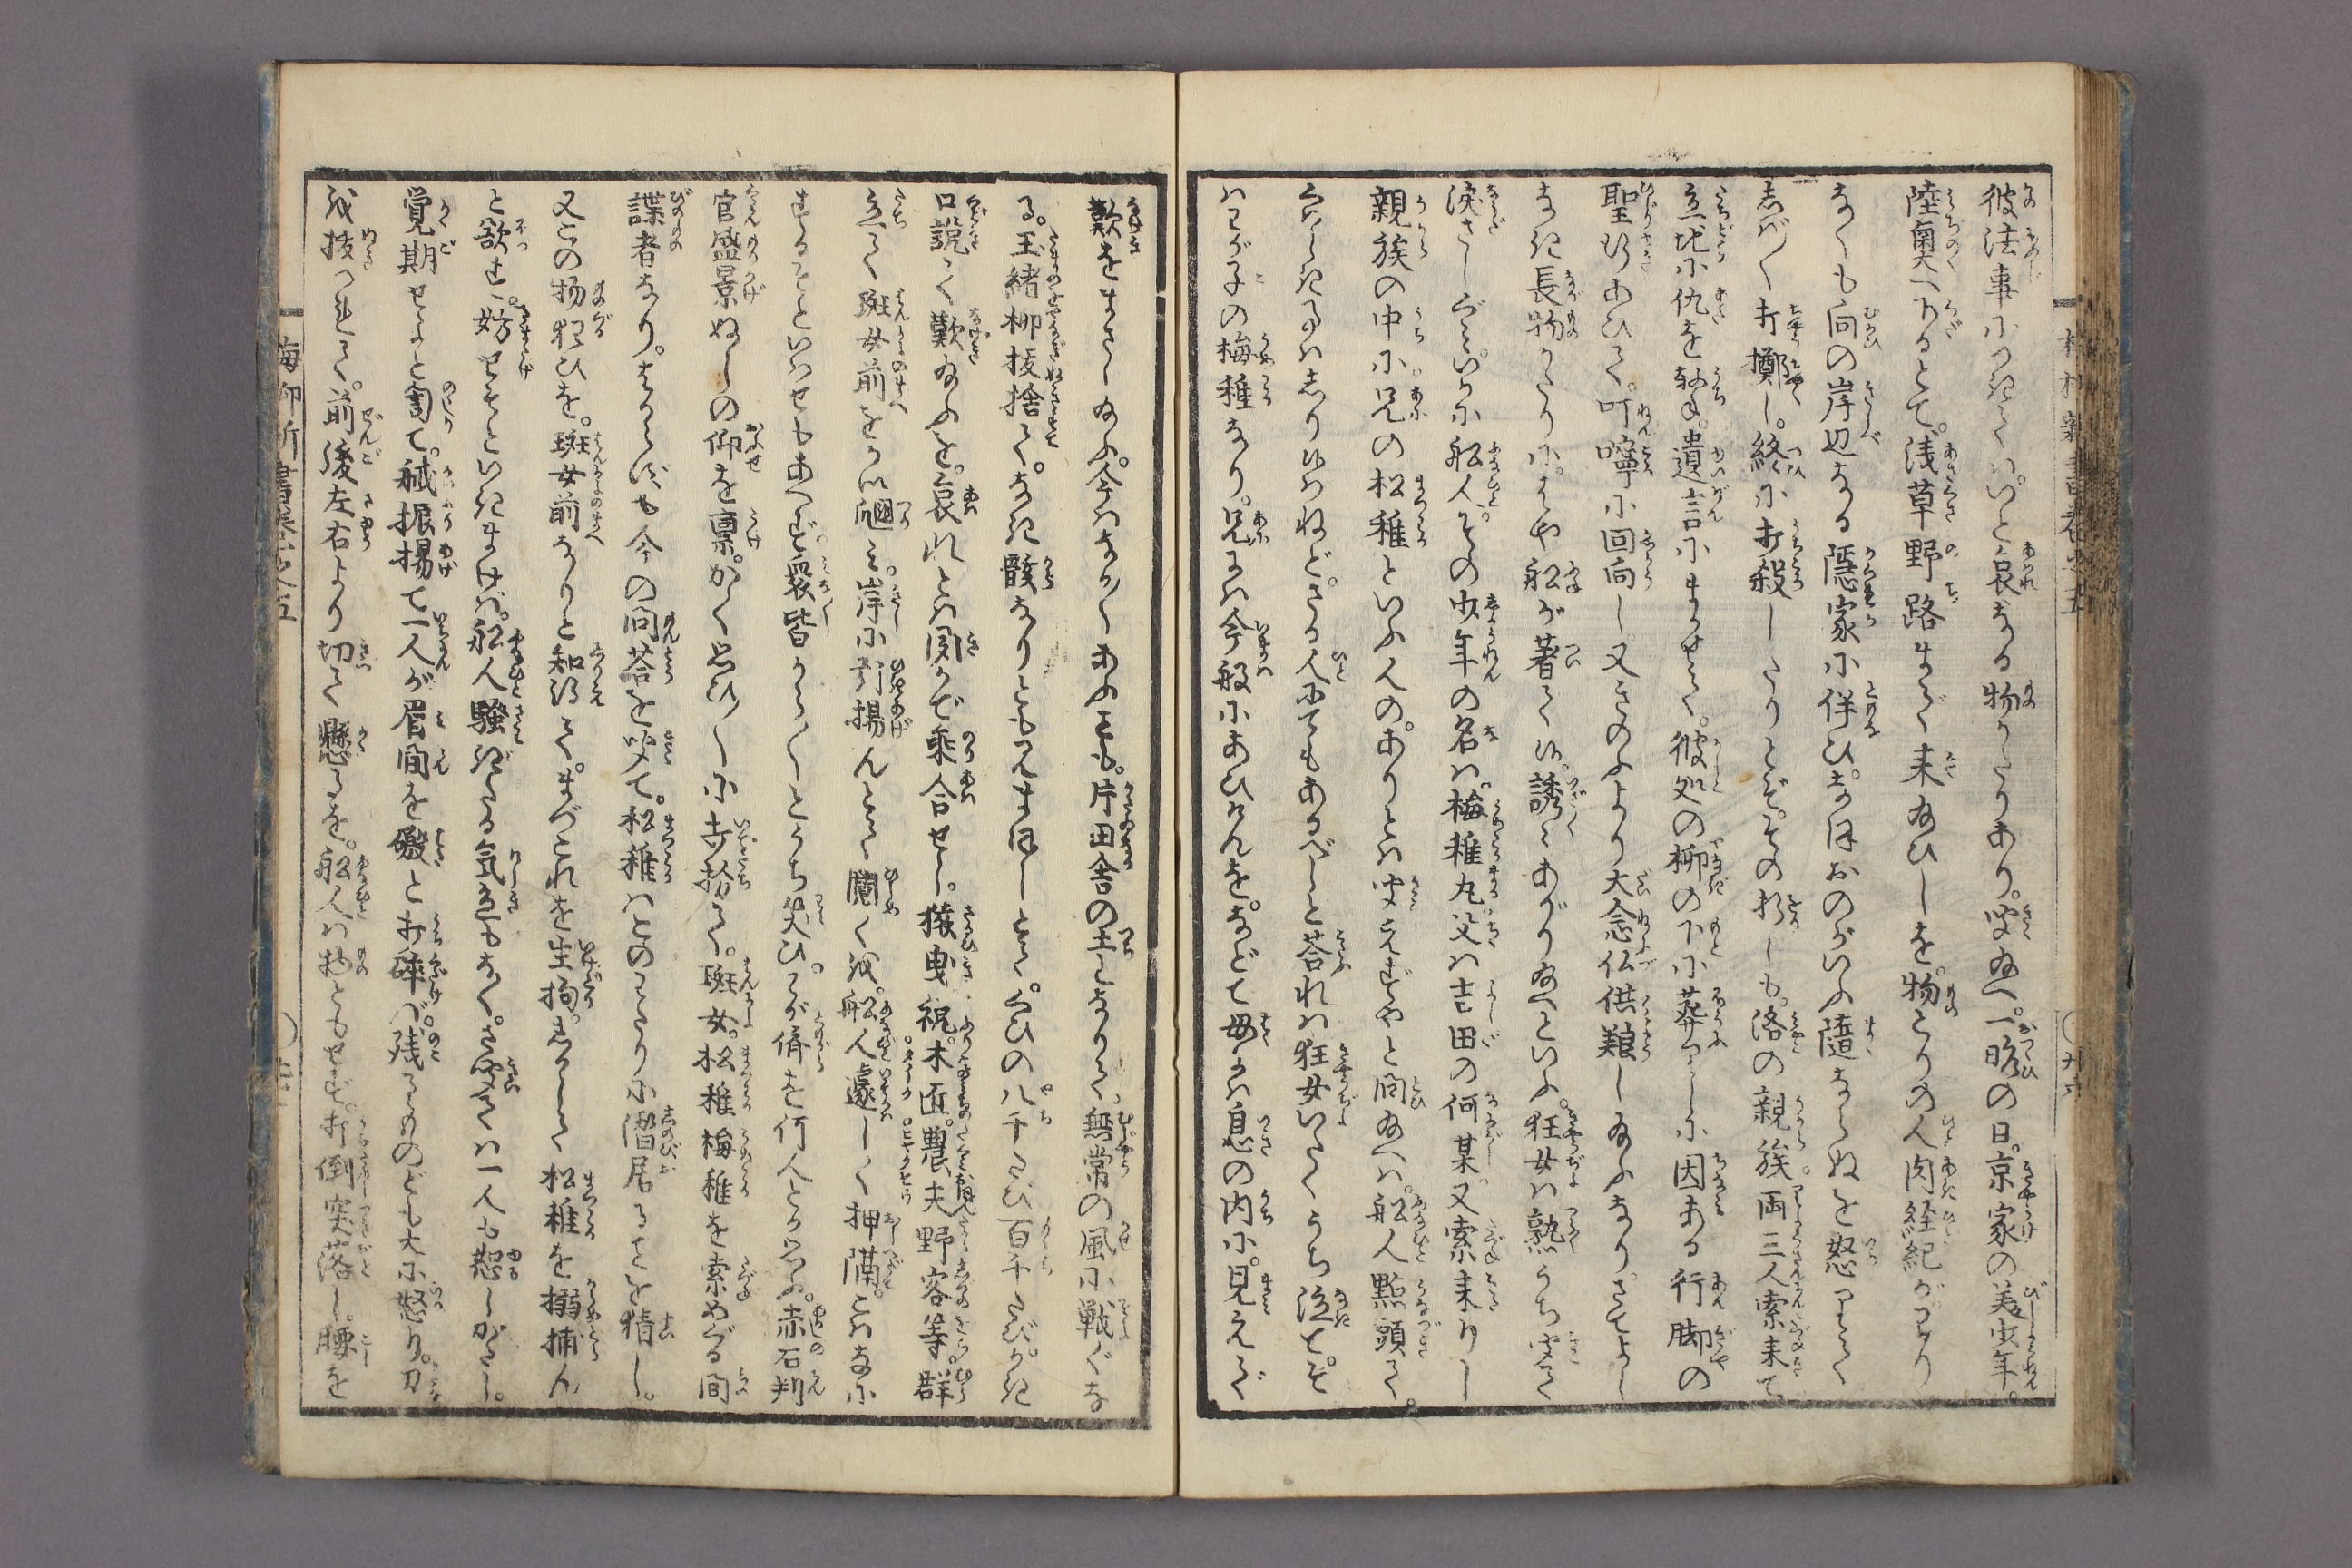 彼法事につきてハ。いと哀なる物がたりあり。聞給へ。一昨の日。京家の美少年。
陸奥へ下るとて。浅草野路まで来給ひしを。物とりの人肉経紀がてり
なくも向の岸辺なる隠家に伴ひ。なほおのがいふ随ならぬを怒りて
しば〳〵打擲し。終に打殺したりとぞ。その折しも。洛の親族両三人索来て
立地に仇を撃。遺言にまかせて。彼処の柳の下に葬りしに因ある行脚の
聖行あひて。叮嚀に回向し又きのふより大念仏供&#39180;し給ふなり。さてよし
なき長物がたりに。はや船が著て候。誘〻あがり給へといふ。狂女ハ熟うち聞て
涙さしぐみ。いかに船人。その少年の名ハ。梅稚丸父ハ吉田の何某。又索来りし
親族の中に。兄の松稚といふ人の。ありとハ聞えずやと問給へハ。船人點頭て。
くはしき事ハしり候はねど。さる人にてもあるべしと答れハ狂女いたくうち泣。そ
ハわが子の梅稚なり。兄まハ今般にあひけんを。などて母にハ息の内に。見えで
歎をまさし給ふ。今ハなか〳〵あふても。片田舎の土となりて。無常の風に戦ぐな
る。玉緒柳抜捨て。なき骸なりとも見まほしとて。くひの八千たび百千たび。かき
口説て歎給ふを。哀れとハ聞かで乗合せし。猿曳祝。木匠。農夫野客等。群
立て斑女前をうち圍み。岸に引揚んとて鬩くを。船人遽しく押隔。こハなに
するぞといはせもあへず。衆皆から〳〵とうち笑ひ。わが儕を何人とか思ふ。赤石判
官盛景ぬしの仰を稟。かく思ひ〳〵に打扮て。斑女。松稚梅稚を索めぐる間
諜者なり。はからずも今の問荅を聞て。松稚ハこのわたりに潜居ることを猜し。
又この物狂ひを。斑女前なりと知得て。まづこれを生拘。しかして松稚を搦捕ん
と欲す。妨せそといきまけバ。船人騒ぎたる気色もなく。さ聞てハ一人も恕しがたし。
覚期せよと罵て。棹振揚て一人が眉間を礑と打砕バ。残るものども大に怒り。刀
を抜つれて。前後左右より切て懸るを。船人ハ物ともせず。打倒突落し。腰を
梅柳新書巻之五